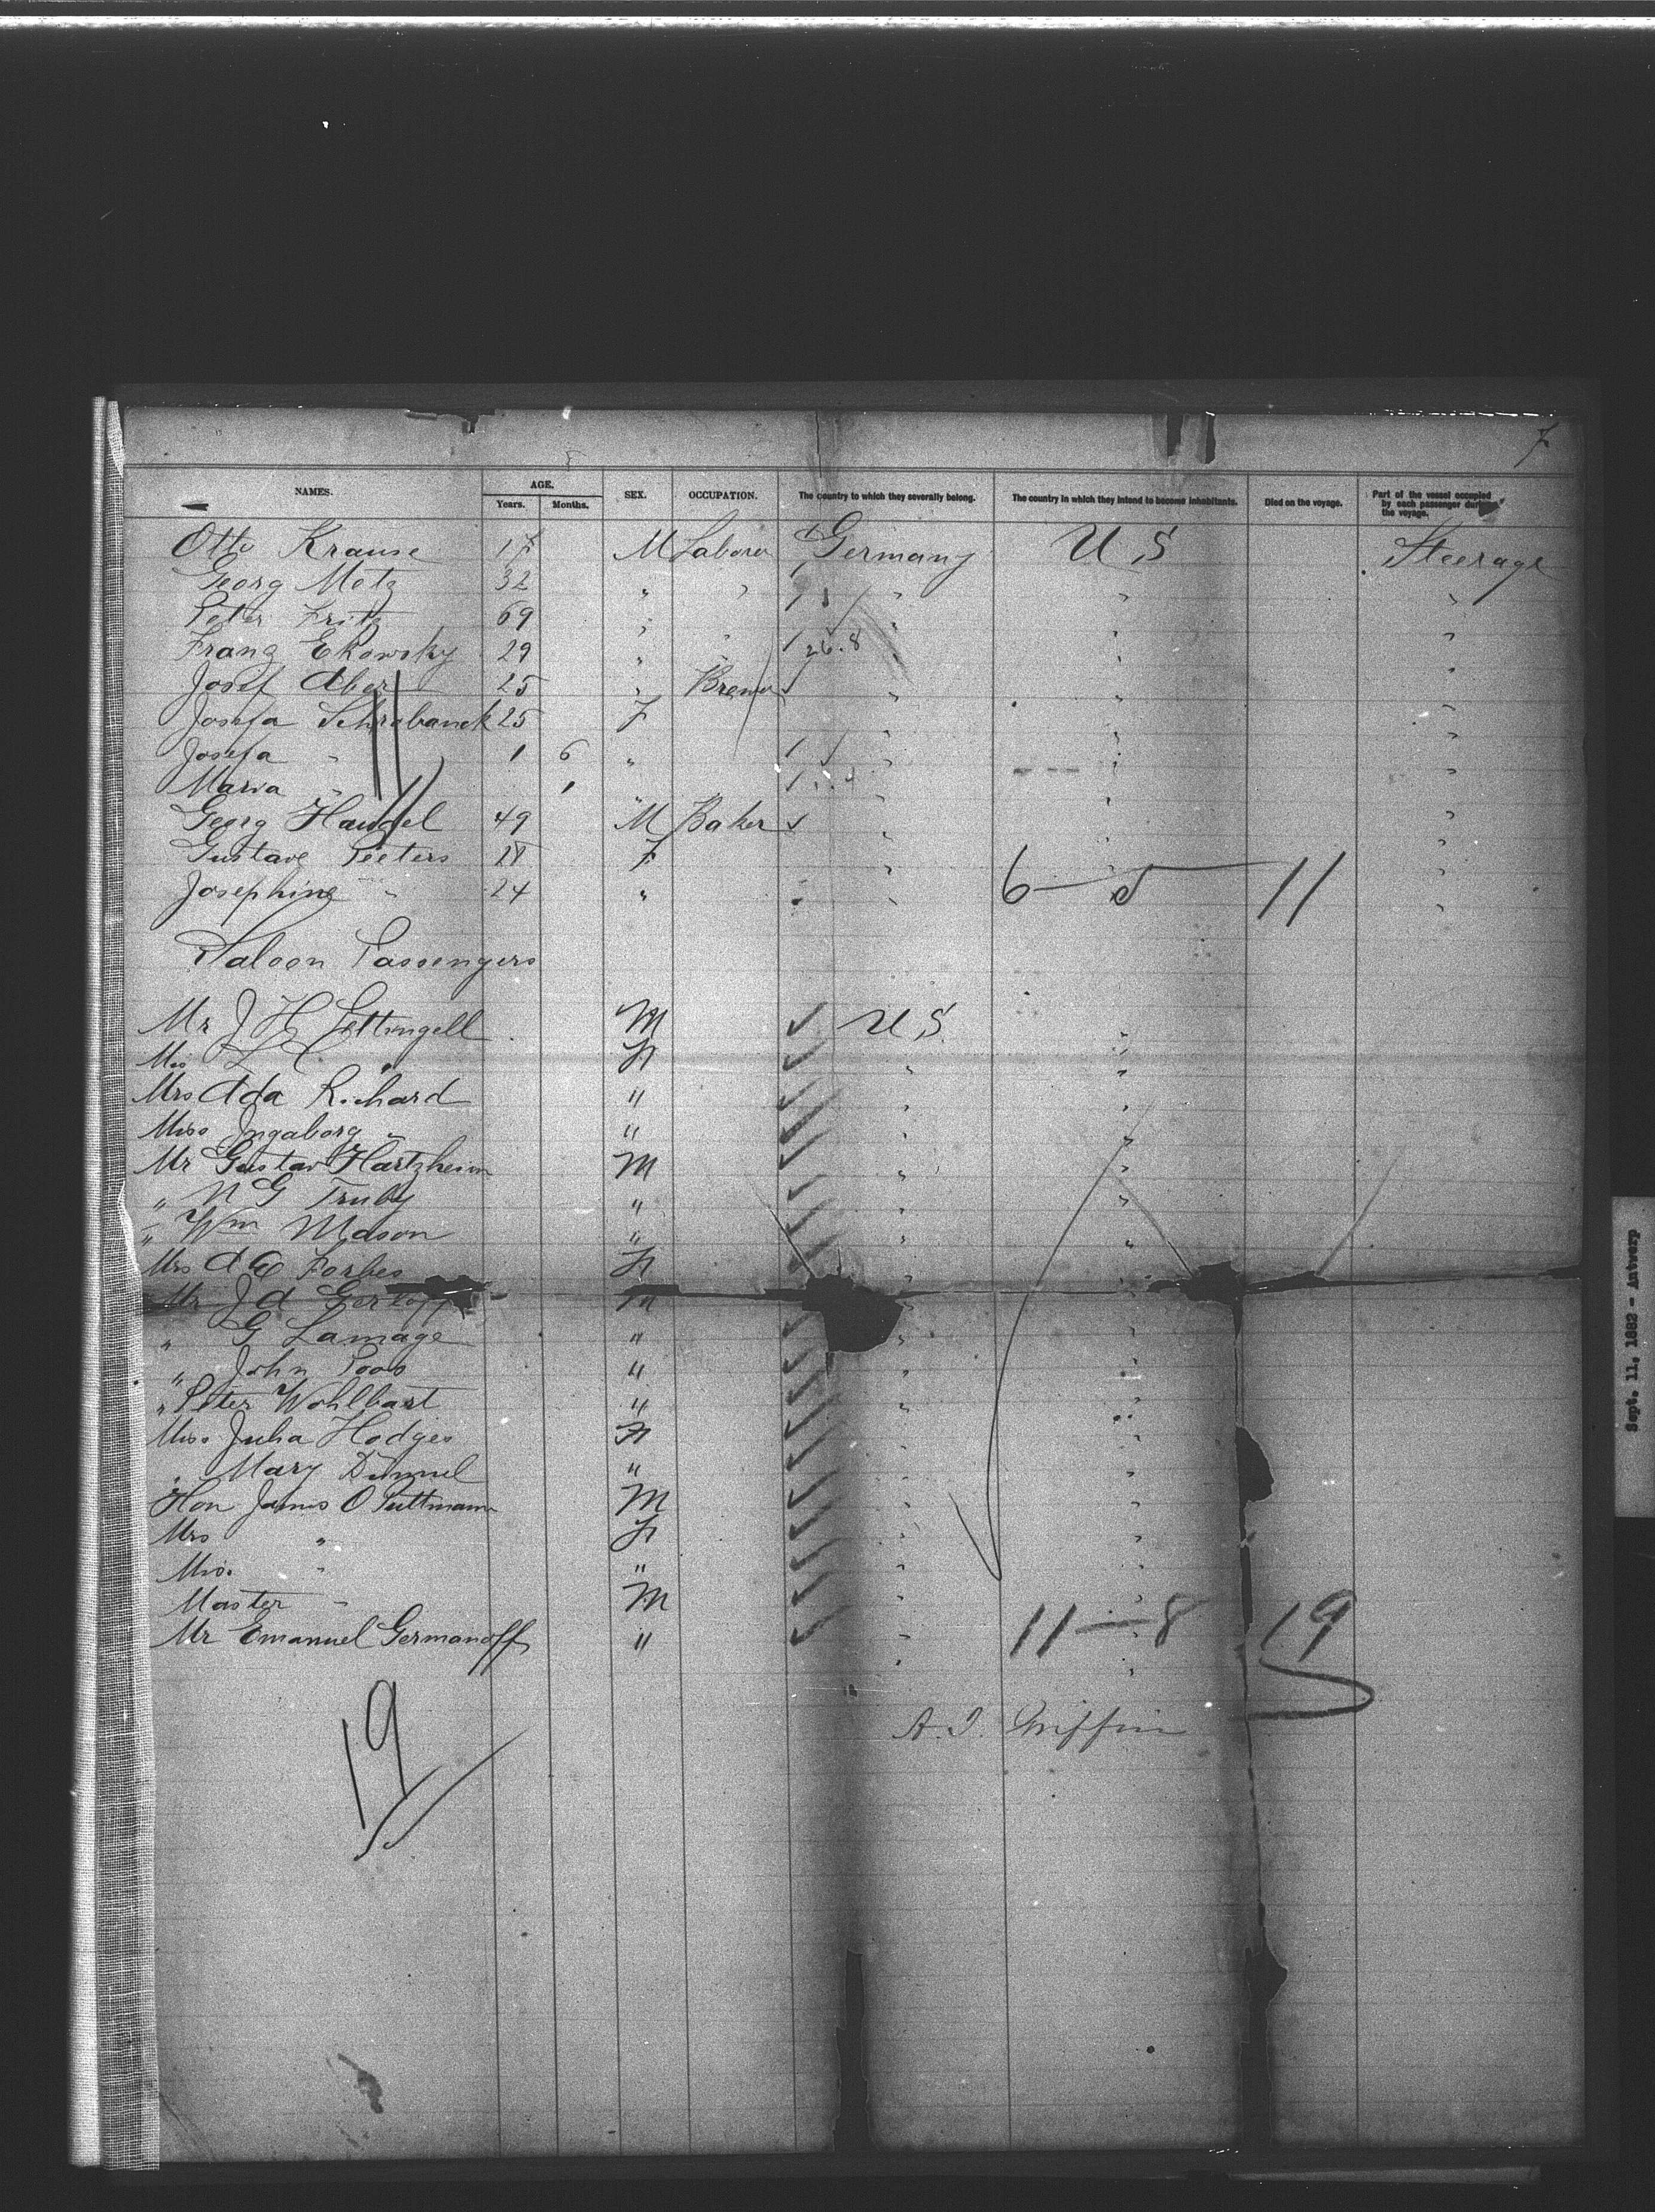 7
NAMES. AGE. SEX. OCCUPATION. The country to which they severally belong. The country in which they intend to become inhabitants. Died on the voyage. Part of the vessel occupied by each passenger during the voyage.
Years. Months.
Otto Krause 17 M Laborer Germany U S Steerage
Georg Motz 32 " " " " "
Peter Fritz 69 " " " "
Franz Ekowsky 29 " " 26.8 " "
Josef Aber 25 " Brewer " " "
Josefa Schrabanek 25 F " " "
Josefa " 1 6 " " " "
Maria " 1 " " " "
Georg Haudel 49 M Baker " " "
Gustave Peeters 28 F " " "
Josephine " 24 " " 6 — 5 11 "
Saloon Passengers
Mr J H Gettingell M U S "
Mrs L C " F " "
Mrs Ada Richard " " "
Miss Ingaborg " " " "
Mr Gustav Hartzheim M " "
" N G Truby " " "
" Wm Mason " " "
Mrs A C Forbes F " "
Mr J A M "
" G Lamage " " "
" John Poos " " "
" Peter Wohlbart " " "
Miss Julia Hodges F " "
" Mary Dimmel " " "
Hon James O Puttmann M " "
Mrs " F " "
Miss " " " "
Master " M " "
Mr Emanuel Germanoff " " 11 — 8 19
19
A. J. Griffin
Sept. 11, 1882 - Antwerp